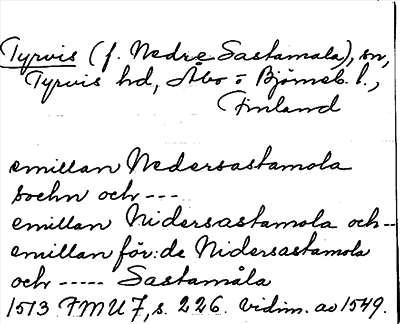 Tyrvis (f. Nedre Sastamala), sn,
Tyrvis hd, Åbo o Björneb. l.,
Finland
emillan Nedersastamola
sochn och ---
emillan Nidersastamola och --
emillan för:de Nidersastamola
och ----- Sastamåla
1513 FMU 7, s. 226. vidim. av 1549.